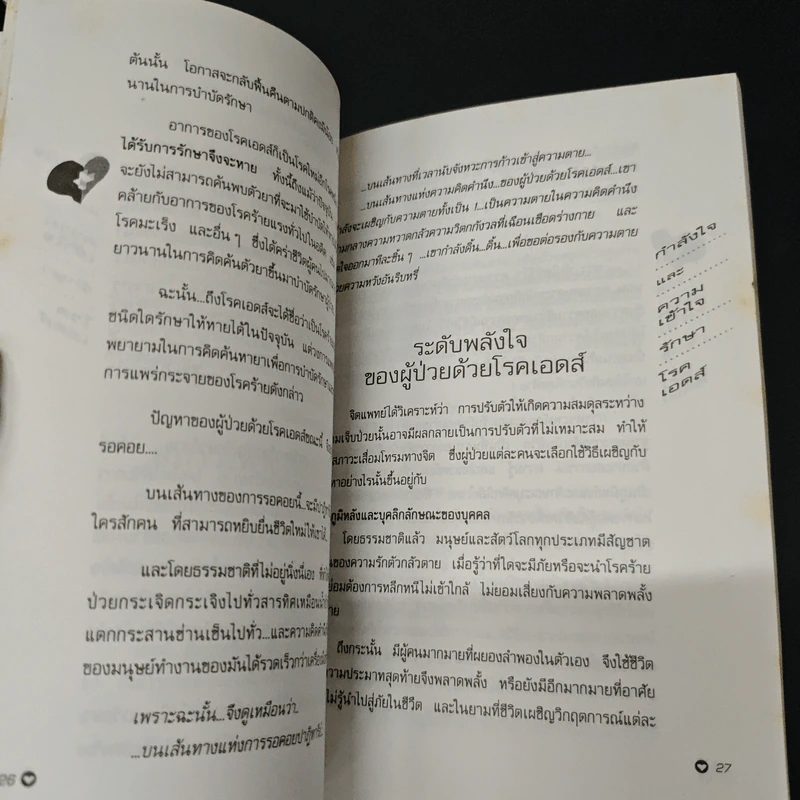 ดันนั้น โอกาสจะกลับฟื้นคืนตามปกติ
นานในการบำบัดรักษา
อาการของโรคเอดส์ก็เป็นโรคใหม่
ได้รับการรักษาจึงจะหาย ทั้งนี้ถึงแม้ว่าปัจจุบัน
จะยังไม่สามารถค้นพบตัวยาที่จะมาใช้บำบัด
คล้ายกับอาการของโรคร้ายแรงทั่วไปในอดีต
โรคมะเร็ง และอื่นๆ ซึ่งได้คร่าชีวิตผู้คน
ยาวนานในการคิดค้นตัวยาขึ้นมาบำบัดรักษา
ฉะนั้น...ถึงโรคเอดส์จะได้ชื่อว่าเป็นโรค
ชนิดใดรักษาให้หายได้ในปัจจุบัน แต่วงการ
พยายามในการคิดค้นหายาเพื่อการบำบัดรักษา
การแพร่กระจายของโรคร้ายดังกล่าว
ปัญหาของผู้ป่วยด้วยโรคเอดส์ขณะนี้
รอคอย....
บนเส้นทางของการรอคอยนี้...จะมี
ใครสักคน ที่สามารถหยิบยื่นชีวิตใหม่ให้เขาได้
และโดยธรรมชาติที่ไม่อยู่นิ่งนี่เอง
ป่วยกระเจิดกระเจิงไปทั่วสารทิศเหมือน
แตกกระสานซ่านเซ็นไปทั่ว...และความคิด
ของมนุษย์ทำงานของมันได้รวดเร็วกว่า
เพราะฉะนั้น...จึงดูเหมือนว่า..
...บนเส้นทางแห่งการรอคอยปาฏิหาริย์
26
...บนเส้นทางที่เวลานับจังหวะการก้าวเข้าสู่ความตาย...
...บนเส้นทางแห่งความคิดคำนึง...ของผู้ป่วยด้วยโรคเอดส์...เขา
กำลังจะเผชิญกับความตายทั้งเป็น !...เป็นความตายในความคิดคำนึง
ท่ามกลางความหวาดกลัวความวิตกกังวลที่เฉือนเชือดร่างกาย และ
ใจออกมาทีละชิ้นๆ ...เขากำลังดิ้น...ดิ้น...เพื่อขอต่อรองกับความตาย
ด้วยความหวังอันริบหรี่
ระดับพลังใจ
ของผู้ป่วยด้วยโรคเอดส์
จิตแพทย์ได้วิเคราะห์ว่า การปรับตัวให้เกิดความสมดุลระหว่าง
เจ็บป่วยนั้นอาจมีผลกลายเป็นการปรับตัวที่ไม่เหมาะสม ทำให้
สภาวะเสื่อมโทรมทางจิต ซึ่งผู้ป่วยแต่ละคนจะเลือกใช้วิธีเผชิญกับ
อย่างไรนั้นขึ้นอยู่กับ
ภูมิหลังและบุคลิกลักษณะของบุคคล
โดยธรรมชาติแล้ว มนุษย์และสัตว์โลกทุกประเภทมีสัญชาต
ของความรักตัวกลัวตาย เมื่อรู้ว่าที่ใดจะมีภัยหรือจะนำโรคร้าย
ย่อมต้องการหลีกหนีไม่เข้าใกล้ ไม่ยอมเสี่ยงกับความพลาดพลั้ง
ถึงกระนั้น มีผู้คนมากมายที่ผยองลำพองในตัวเอง จึงใช้ชีวิต
ความประมาทสุดท้ายจึงพลาดพลั้ง หรือยังมีอีกมากมายที่อาศัย
ไม่รู้นำไปสู่ภัยในชีวิต และในยามที่ชีวิตเผชิญวิกฤตการณ์แต่ละ
27
กำลังใจ
และ
ความ
เข้าใจ
รักษา
โรค
เอดส์